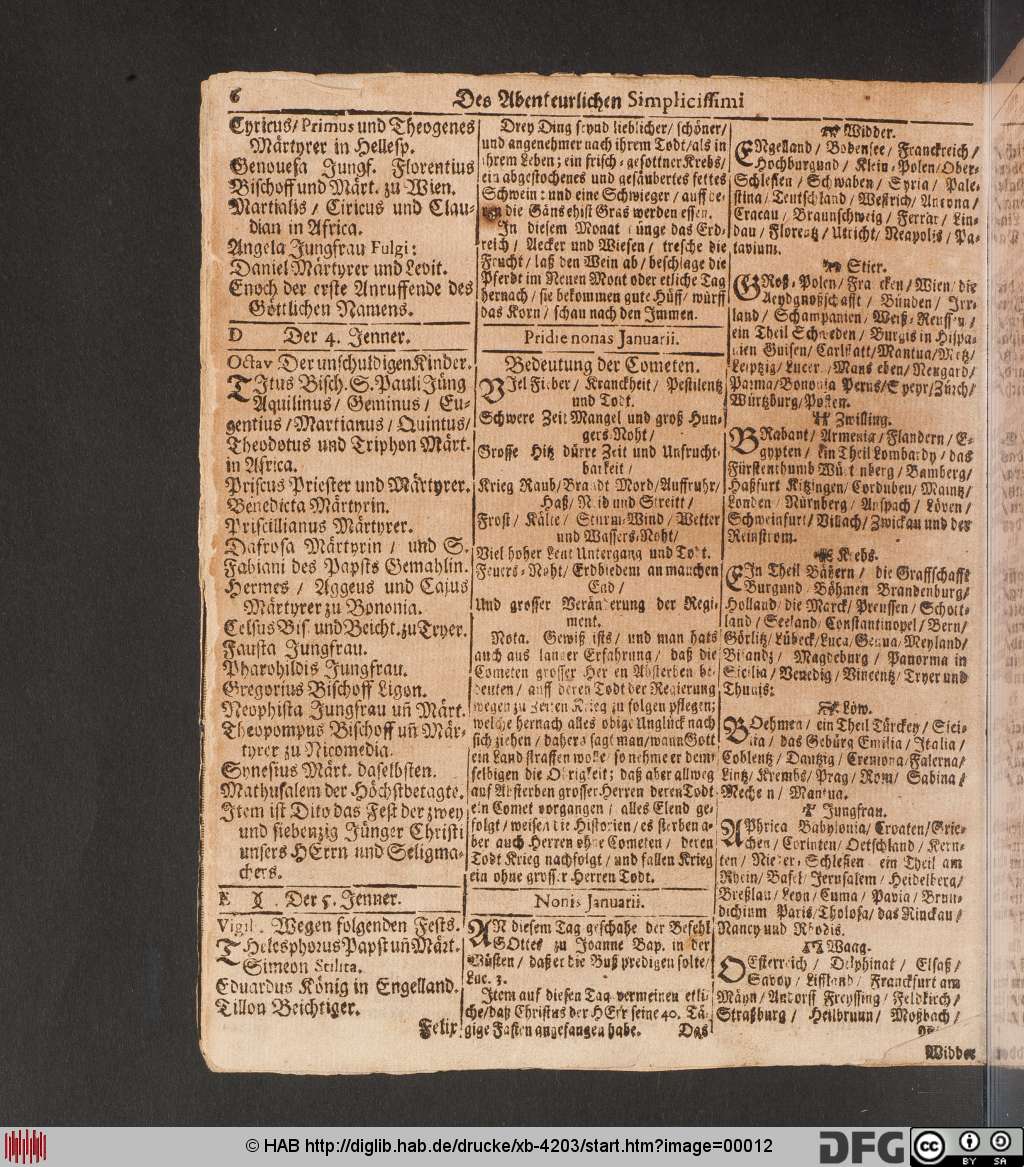 6
Des Abenteurlichen Simplicissimi
Cyricus/ Primus und Theogenes
Märtyrer in Hellesp.
Genovefa Jungf. Florentius
Bischoff und Märt. zu Wien.
Martialis / Ciricus und Clau-
dian in Africa.
Angela Jungfrau Fulgi:
Daniel Märtyrer und Levit.
Enoch der erste Anruffende des
Göttlichen Namens.
D Der 4. Jenner.
Octav Der unschuldigen Kinder.
TJtus Bisch. S. Pauli Jüng
Aquilinus / Geminus / Eu-
gentius / Martianus / Quintus/
Theodotus und Triphon Märt.
in Africa.
Priscus Priester und Märtyrer.
Benedicta Märtyrin.
Priscillianus Märtyrer.
Dafrosa Märtyrin / und S.
Fabiani des Papsts Gemahlin.
Hermes / Aggeus und Cajus
Märtyrer zu Bononia.
Celsus Bis. und Beicht. zu Tryer.
Fausta Jungfrau.
Pharohildis Jungfrau.
Gregorius Bischoff Ligon.
Neophista Jungfrau uñ Märt.
Theopompus Bischoff uñ Mär-
tyrer zu Nicomedia.
Synesius Märt. daselbsten.
Mathusalem der Höchstbetagte.
Item ist Dito das Fest der zwey
und siebenzig Jünger Christi
unsers HErrn und Seligma-
chers.
E Der 5. Jenner.
Vigil. Wegen folgenden Fests.
THelesphorus Papst uñ Märt.
Simeon Stilita.
Eduardus König in Engelland.
Tillon Beichtiger.
Felix
Drey Ding seynd lieblicher/ schöner/
und angenehmer nach ihrem Todt/als in
ihrem Leben; ein frisch-gesottner Krebs/
ein abgestochenes und gesäubertes fettes
Schwein: und eine Schwieger / auff de-
ren die Gäns ehist Gras werden essen.
In diesem Monat tünge das Erd-
reich / Aecker und Wiesen / tresche die
Frucht / laß den Wein ab / beschlage die
Pferdt im Neuen Mont oder etliche Tag
hernach / sie bekommen gute Hüff/ würff
das Korn / schau nach den Immen.
Pridie nonas Januarii.
Bedeutung der Cometen.
VJel Fieber / Kranckheit / Pestilentz
und Todt.
Schwere Zeit Mangel und groß Hun-
gers-Noht /
Grosse Hitz dürre Zeit und Unfrucht-
barkeit /
Krieg Raub/ Brandt Mord/ Auffruhr/
Haß / Neid und Streitt /
Frost / Kälte / Sturm-Wind / Wetter
und Wassers-Noht /
Viel hoher Leut Untergang und Todt.
Feuers-Noht / Erdbiedem an manchen
End /
Und grosser Veränderung der Regi-
ment.
Nota. Gewiß ists / und man hats
auch aus langer Erfahrung / daß die
Cometen grosser Herren Absterben be-
deuten / auff deren Todt der Regierung
wegen zu Zeiten Krieg zu folgen pflegen;
welche hernach alles obige Unglück nach
sich ziehen / dahero sagt man/ wann Gott
ein Land straffen wolle / so nehme er dem-
selbigen die Obrigkeit; daß aber allweg
auf Absterben grosser Herren deren Todt
ein Comet vorgangen / alles Elend ge-
folgt / weisen die Historien / es sterben a-
ber auch Herren ohne Cometen / deren
Todt Krieg nachfolgt / und fallen Krieg
ein ohne grosser Herren Todt.
Nonis Januarii.
AN diesem Tag geschahe der Befehl
GOttes zu Joanne Bap. in der
Wüsten / daß er die Buß predigen solte/
Luc. 3.
Item auf diesen Tag vermeinen etli-
che / daß Christus der HErr seine 40. Tä-
gige Fasten angefangen habe. Das
Widder.
ENgelland / Bodensee / Franckreich /
Hochburgund / Klein-Polen/Ober-
Schlesien / Schwaben / Syria / Pale-
stina/ Teutschland / Westrich/ Ancona /
Cracau / Braunschweig / Ferrar / Lin-
dau / Florentz / Utricht / Neapolis / Pa-
tavium.
Stier.
GRoß-Polen / Francken / Wien / die
Aeydgnoßschafft / Bünden / Irr-
land / Schampanien / Weiß-Reussen /
ein Theil Schweden / Burgis in Hispa-
nien Guisen / Carlstatt/Mantua/Metz/
Leipzig/ Lucern / Nengard/
Parma/ Bononia Perus/ Speyr/Zürch/
Würtzburg/ Posten.
Zwilling.
BRabant / Armenia / Flandern / E-
gypten / ein Theil Lombardy / das
Fürstenthumb Würtenberg / Bamberg/
Haßfurt Kitzingen / Corduben / Maintz/
Londen / Nürnberg / Anspach / Löven /
Schweinfurt/ Villach/ Zwickau und der
Reinstrom.
Krebs.
EIn Theil Bäyern / die Graffschafft
Burgund Böhmen Brandenburg/
Holland/ die Marck/ Preussen / Schott-
land / Seeland/ Constantinopel / Bern/
Görlitz/ Lübeck/ Luca/ Genua/Meyland/
Bisandz / Magdeburg / Panorma in
Sicilia / Venedig / Vincentz/ Tryer und
Thunis:
Löw.
BOehmen / ein Theil Türckey / Sici-
lia / das Gebürg Emilia / Italia /
Coblentz / Dantzig / Cremona/ Falerna/
Lintz/ Krembs / Prag / Rom / Sabina /
Mecheln / Mantua.
Jungfrau.
APhrica Babylonia/ Croaten/Grie-
chen / Corinten / Oetschland / Kern-
ten / Nieder-Schlesien ein Theil am
Rhein/ Basel/ Jerusalem / Heidelberg/
Breßlau / Leon / Cuma / Pavia / Brun-
dichium Paris/ Tholosa/ das Rinckau /
Nancy und Rhodis.
Waag.
OEsterreich / Delphinat / Elsaß /
Savoy / Liffland / Franckfurt am
Mäyn/ Andorff Freyssing / Feldkirch /
Straßburg / Heilbrunn / Moßbach /
Widder
© HAB http://diglib.hab.de/drucke/xb-4203/start.htm?image=00012
DFG
cc
BY SA